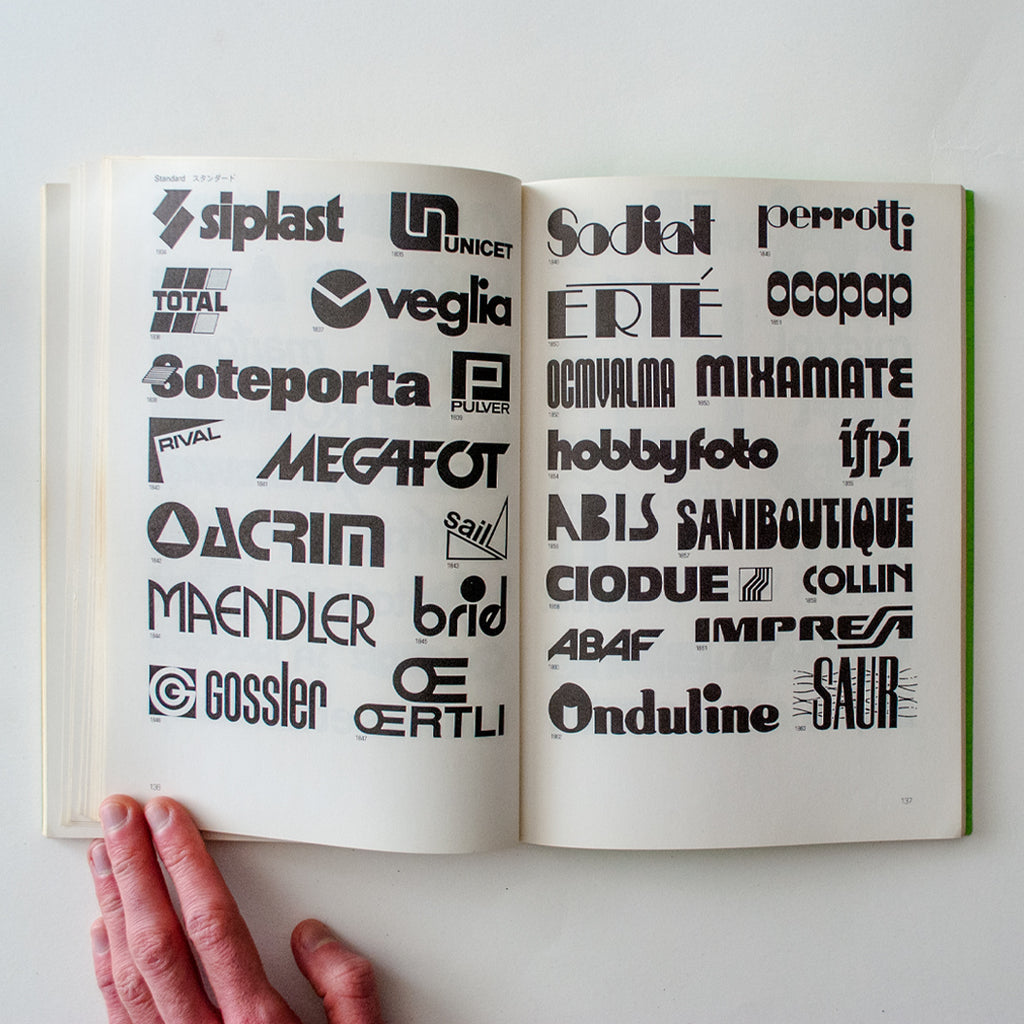 Standard スタンダード
siplast
UNICET
1834
1835
TOTAL
veglia
1836
1837
Soteporta
PULVER
1838
1839
RIVAL
MEGAFOT
1840
1841
ACRIM
sail
1842
1843
MAENDLER
brid
1844
1845
G
GOSSLER
OE
OERTLI
1846
1847
136
Sodiat
perrotti
1848
1849
ERTÉ
ocopap
1850
1851
OCMVALMA
MIXAMATE
1852
hobbyfoto
ifpi
1854
1855
ABIS
SANIBOUTIQUE
1856
1857
CIODUE
COLLIN
1858
1859
ABAF
IMPRESA
1860
1861
Onduline
SAUR
1862
1863
137